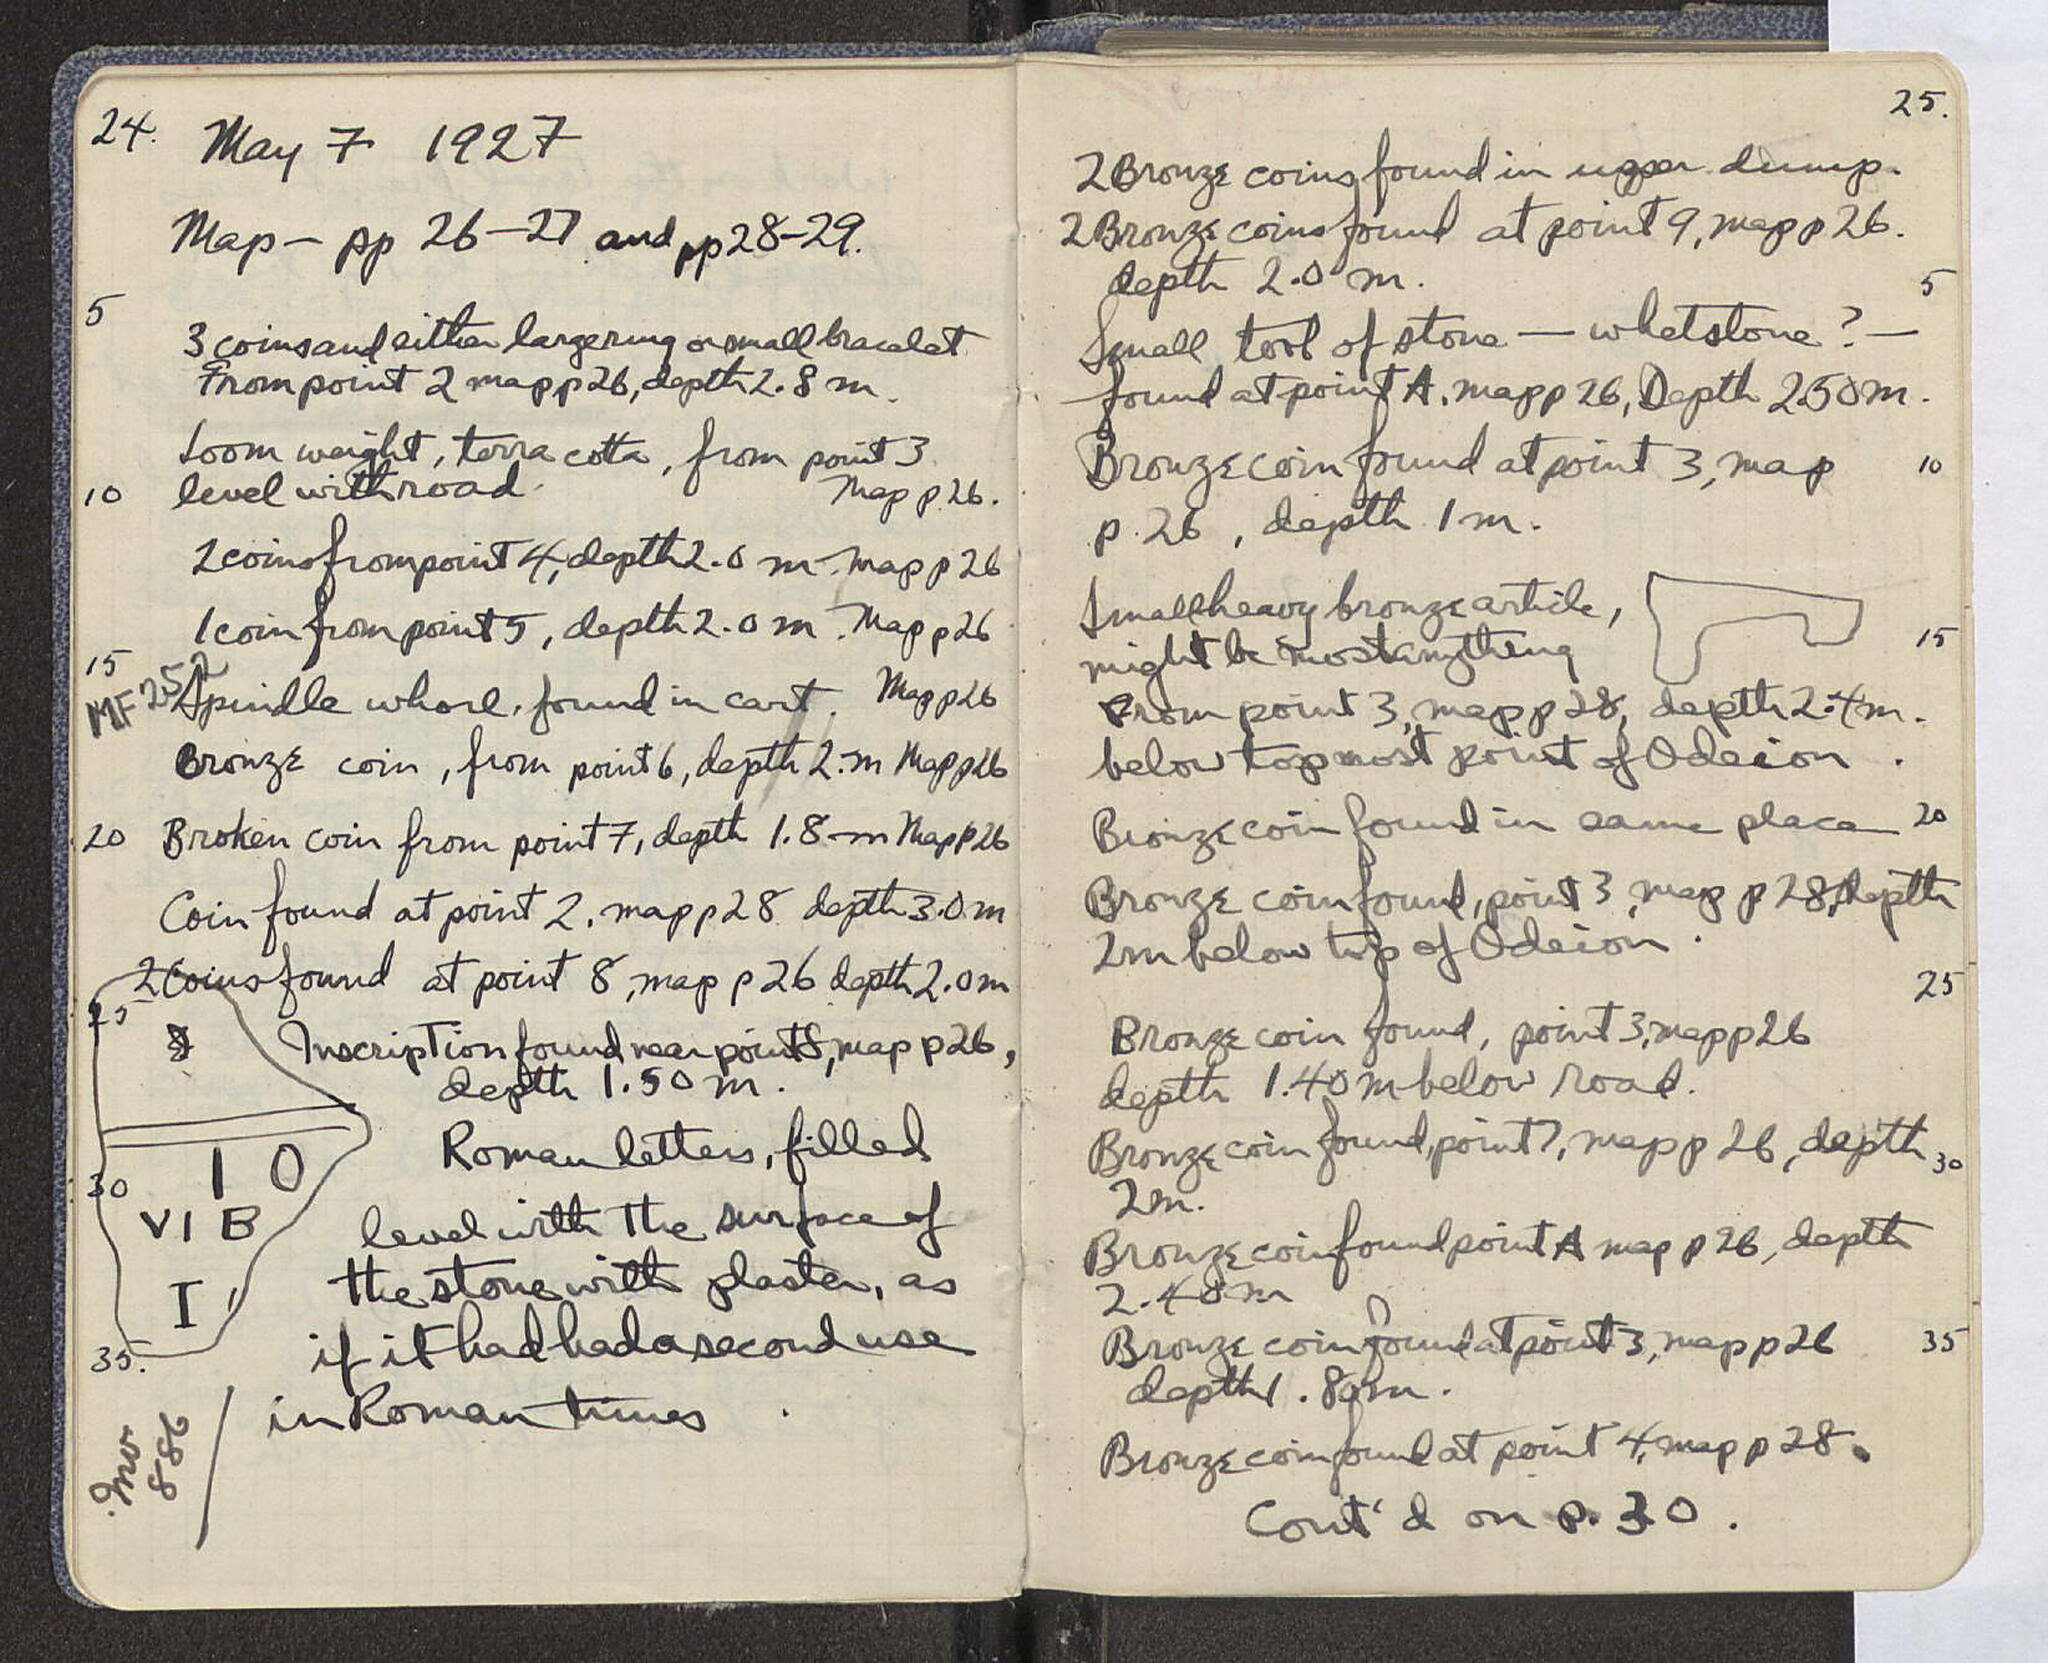 24.
May 7 1927
Map — pp 26-27 and pp 28-29.
5
3 coins and either large ring or small bracelet
From point 2 map p 26, depth 2.8 m.
Loom weight, terra cotta, from point 3
10 level with road. Map p. 26.
2 coins from point 4, depth 2.0 m. Map p 26
1 coin from point 5, depth 2.0 m. Map p 26
15
MF 252 Spindle whorl, found in cart. Map p 26
Bronze coin, from point 6, depth 2.m Map p 26
20 Broken coin from point 7, depth 1.8 m Map p 26
Coin found at point 2, map p 28 depth 3.0 m
2 Coins found at point 8, map p 26 depth 2.0 m
25
Inscription found near point 8, map p 26,
depth 1.50 m.
Roman letters, filled
I O
30
VI B
level with the surface of
I
the stone with plaster, as
35. if it had had a second use
in Roman times.
Inv
886
25.
2 Bronze coins found in upper dump.
2 Bronze coins found at point 9, map p 26.
depth 2.0 m. 5
Small tool of stone — whetstone? —
found at point A. map p 26, Depth 2.50 m.
Bronze coin found at point 3, map 10
p. 26, depth 1 m.
Small heavy bronze article,
might be most anything 15
From point 3, map p 28, depth 2.4 m.
below topmost point of Odeion.
Bronze coin found in same place 20
Bronze coin found, point 3, map p 28, depth
2m below top of Odeion.
25
Bronze coin found, point 3, map p 26
depth 1.40 m below road.
Bronze coin found, point 7, map p 26, depth 30
2m.
Bronze coin found point A map p 26, depth
2.40 m
Bronze coin found at point 3, map p 26 35
depth 1.80 m.
Bronze coin found at point 4, map p 28.
Cont'd on p. 30.